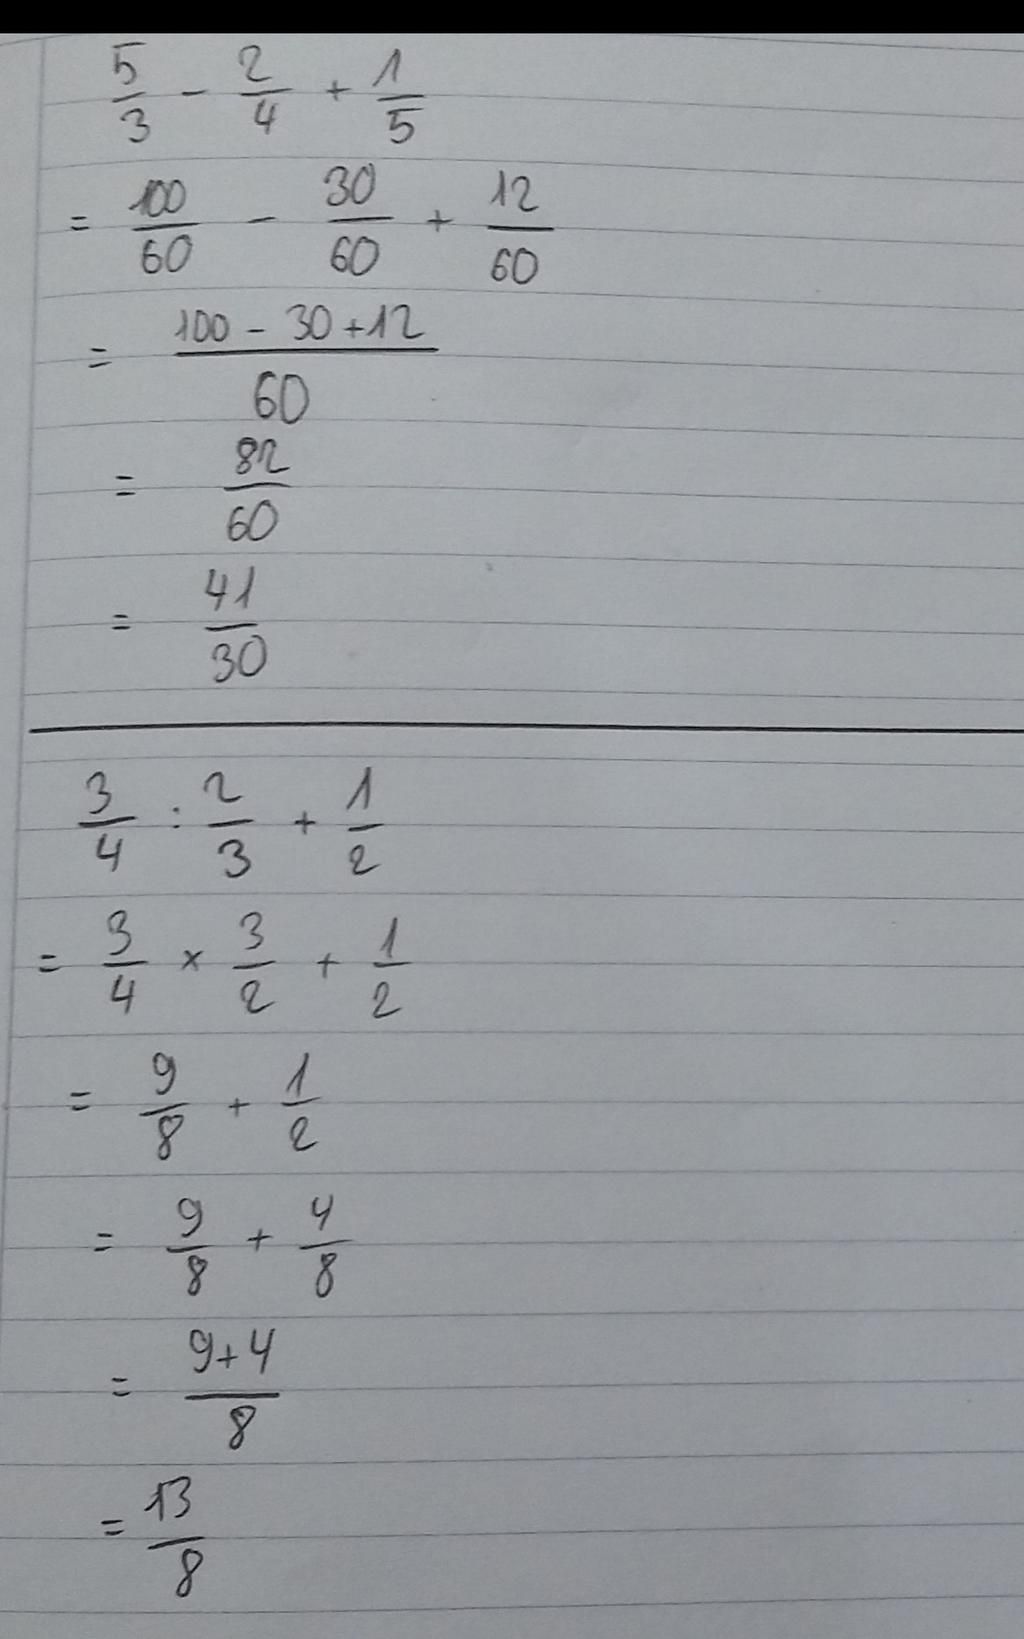 5/3 - 2/4 + 1/5
= 100/60 - 30/60 + 12/60
= (100 - 30 + 12)/60
= 82/60
= 41/30
3/4 : 2/3 + 1/2
= 3/4 × 3/2 + 1/2
= 9/8 + 1/2
= 9/8 + 4/8
= (9+4)/8
= 13/8